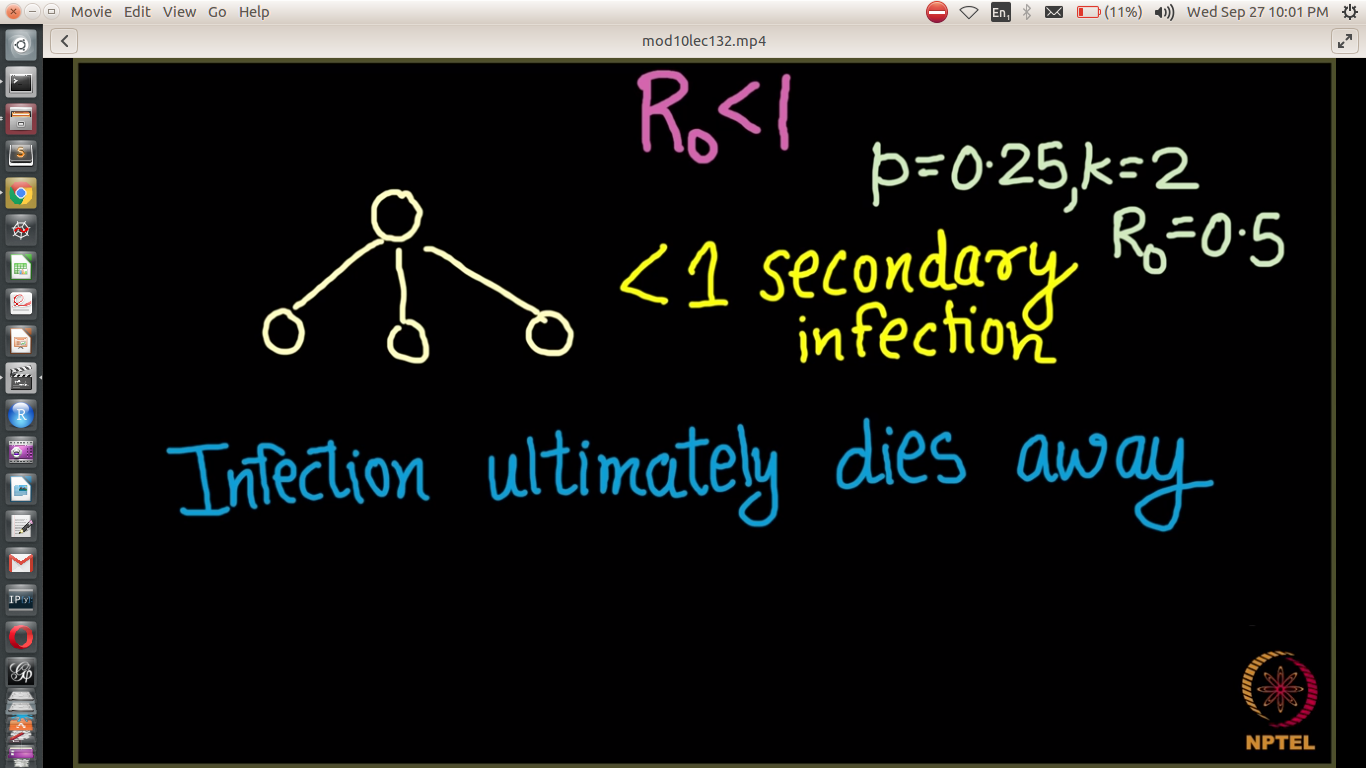 Movie Edit View Go Help
En1 (11%) Wed Sep 27 10:01 PM
mod10lec132.mp4
R0<1
p=0.25,k=2
R0=0.5
<1 secondary
infection
Infection ultimately dies away
NPTEL